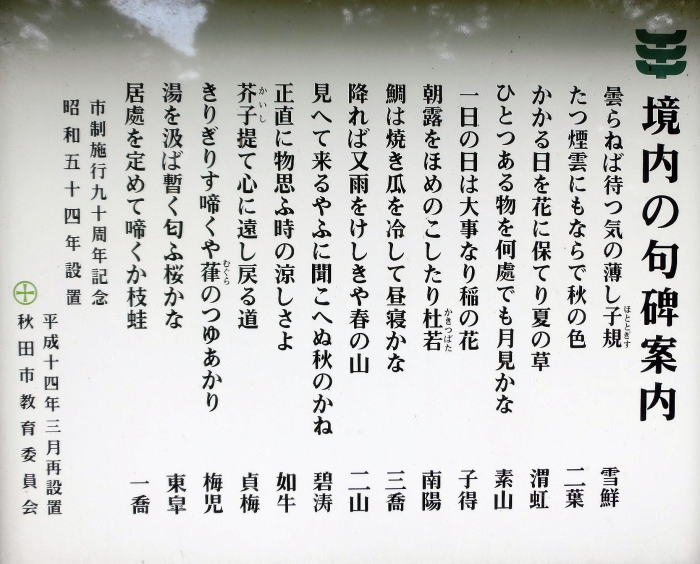 境内の句碑案内
曇らねば待つ気の薄し子規 雪鮮
ほととぎす
たつ煙雲にもならで秋の色 二葉
かかる日を花に保てり夏の草 渭虹
ひとつある物を何處でも月見かな 素山
一日の日は大事なり稲の花 子得
朝露をほめのこしたり杜若 南陽
かきつばた
鯛は焼き瓜を冷して昼寝かな 三喬
降れば又雨をけしきや春の山 二山
見へて来るやふに聞こへぬ秋のかね 碧涛
正直に物思ふ時の涼しさよ 如牛
芥子提て心に遠し戻る道 貞梅
かいし
きりぎりす啼くや葎のつゆあかり 梅児
むぐら
湯を汲ば暫く匂ふ桜かな 東皐
居處を定めて啼くか枝蛙 一喬
市制施行九十周年記念
昭和五十四年設置
平成十四年三月再設置
秋田市教育委員会